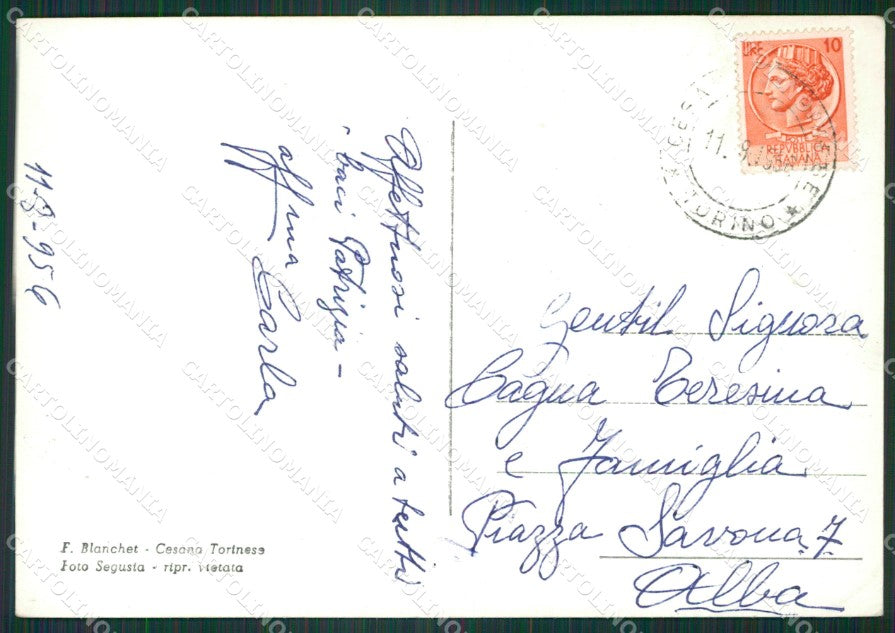 11-9-956
Affettuosi saluti a tutti
i baci Patrizia -
aff.ma Carla
F. Blanchet - Cesana Torinese
Foto Segusta - ripr. vietata
LIRE 10
POSTE
REPVBBLICA
ITALIANA
11. 9.
TORINO
Gentil Signora
Cagna Teresina
e Famiglia
Piazza Savona 7
Alba
CARTOLINOMANIA